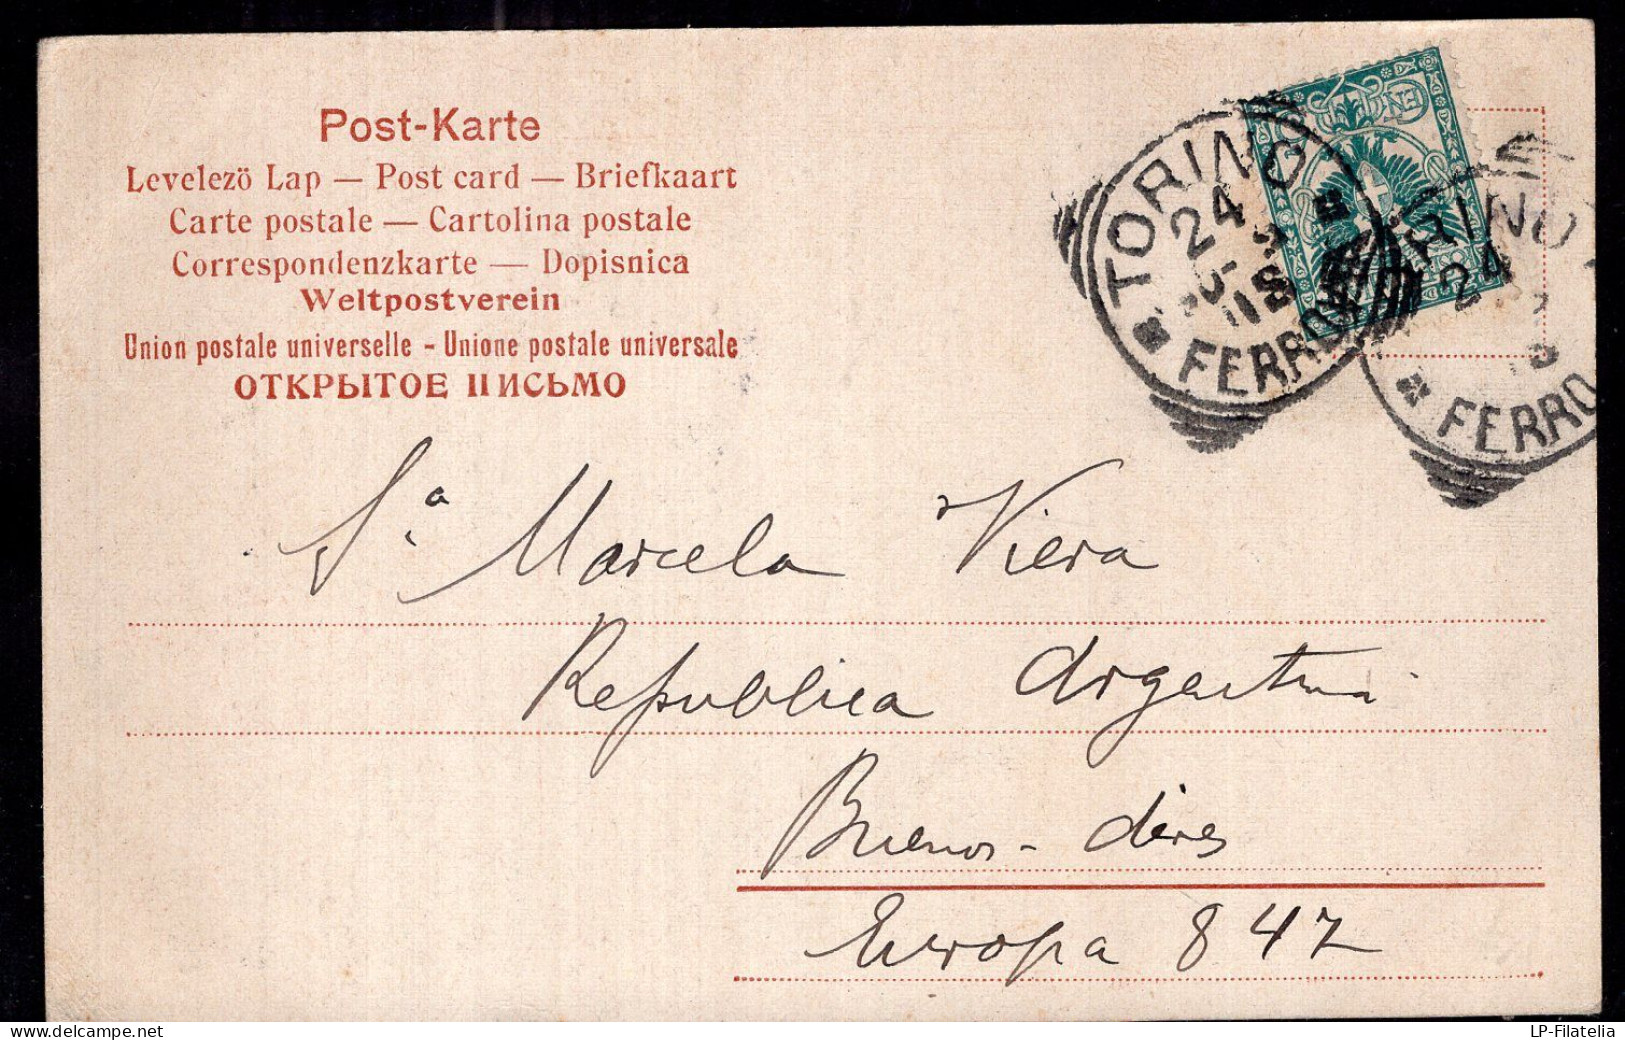 Post-Karte
Levelezö Lap — Post card — Briefkaart
Carte postale — Cartolina postale
Correspondenzkarte — Dopisnica
Weltpostverein
Union postale universelle - Unione postale universale
ОТКРЫТОЕ ПИСЬМО
TORINO
24
FERROVIA
RINO
24
FERRO
S.ª Marcela Viera
Republica Argentina
Buenos-Aires
Europa 847
LP-Filatelia